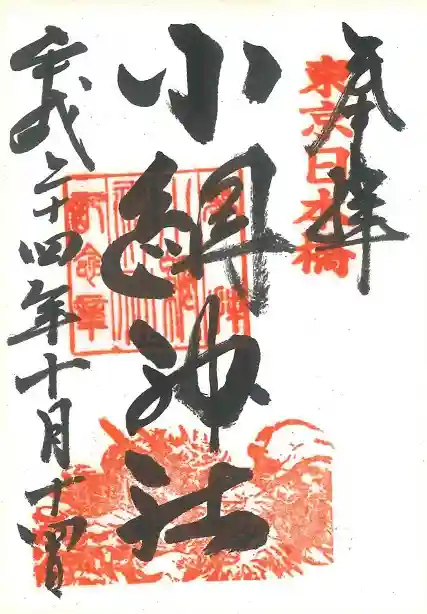 奉拝
東京日本橋
小網神社
平成二十四年十月十四日